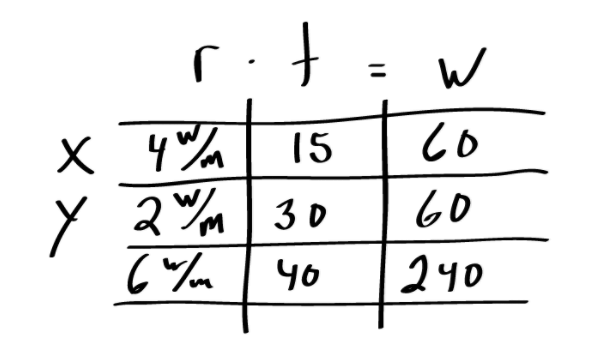 r · t = w
X 4 w/m 15 60
Y 2 w/m 30 60
6 w/m 40 240